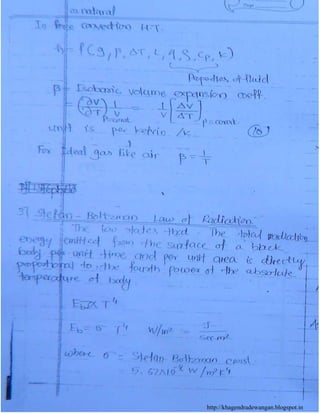 Page
or natural
In free convection H.T.
h = f (g, β, ΔT, L, η, ρ, Cp, k)
Properties of fluid
β = Isobaric volume expansion coeff.
= (∂V/∂T) P=const 1/V = 1/V [ΔV/ΔT] P=const.
unit is per kelvin /K
For Ideal gas like air β = 1/T
5) Stefan - Boltzman Law of Radiation
The law states that : The total radiation
energy emitted from the surface of a black
body per unit time and per unit area is directly
proportional to the fourth power of the absolute
temperature of body
Eb ∝ T⁴
Eb = σ T⁴ W/m² = J / sec m²
where σ = Stefan Boltzman const
= 5.67×10⁻⁸ W/m²K⁴
http://khagendradewangan.blogspot.in